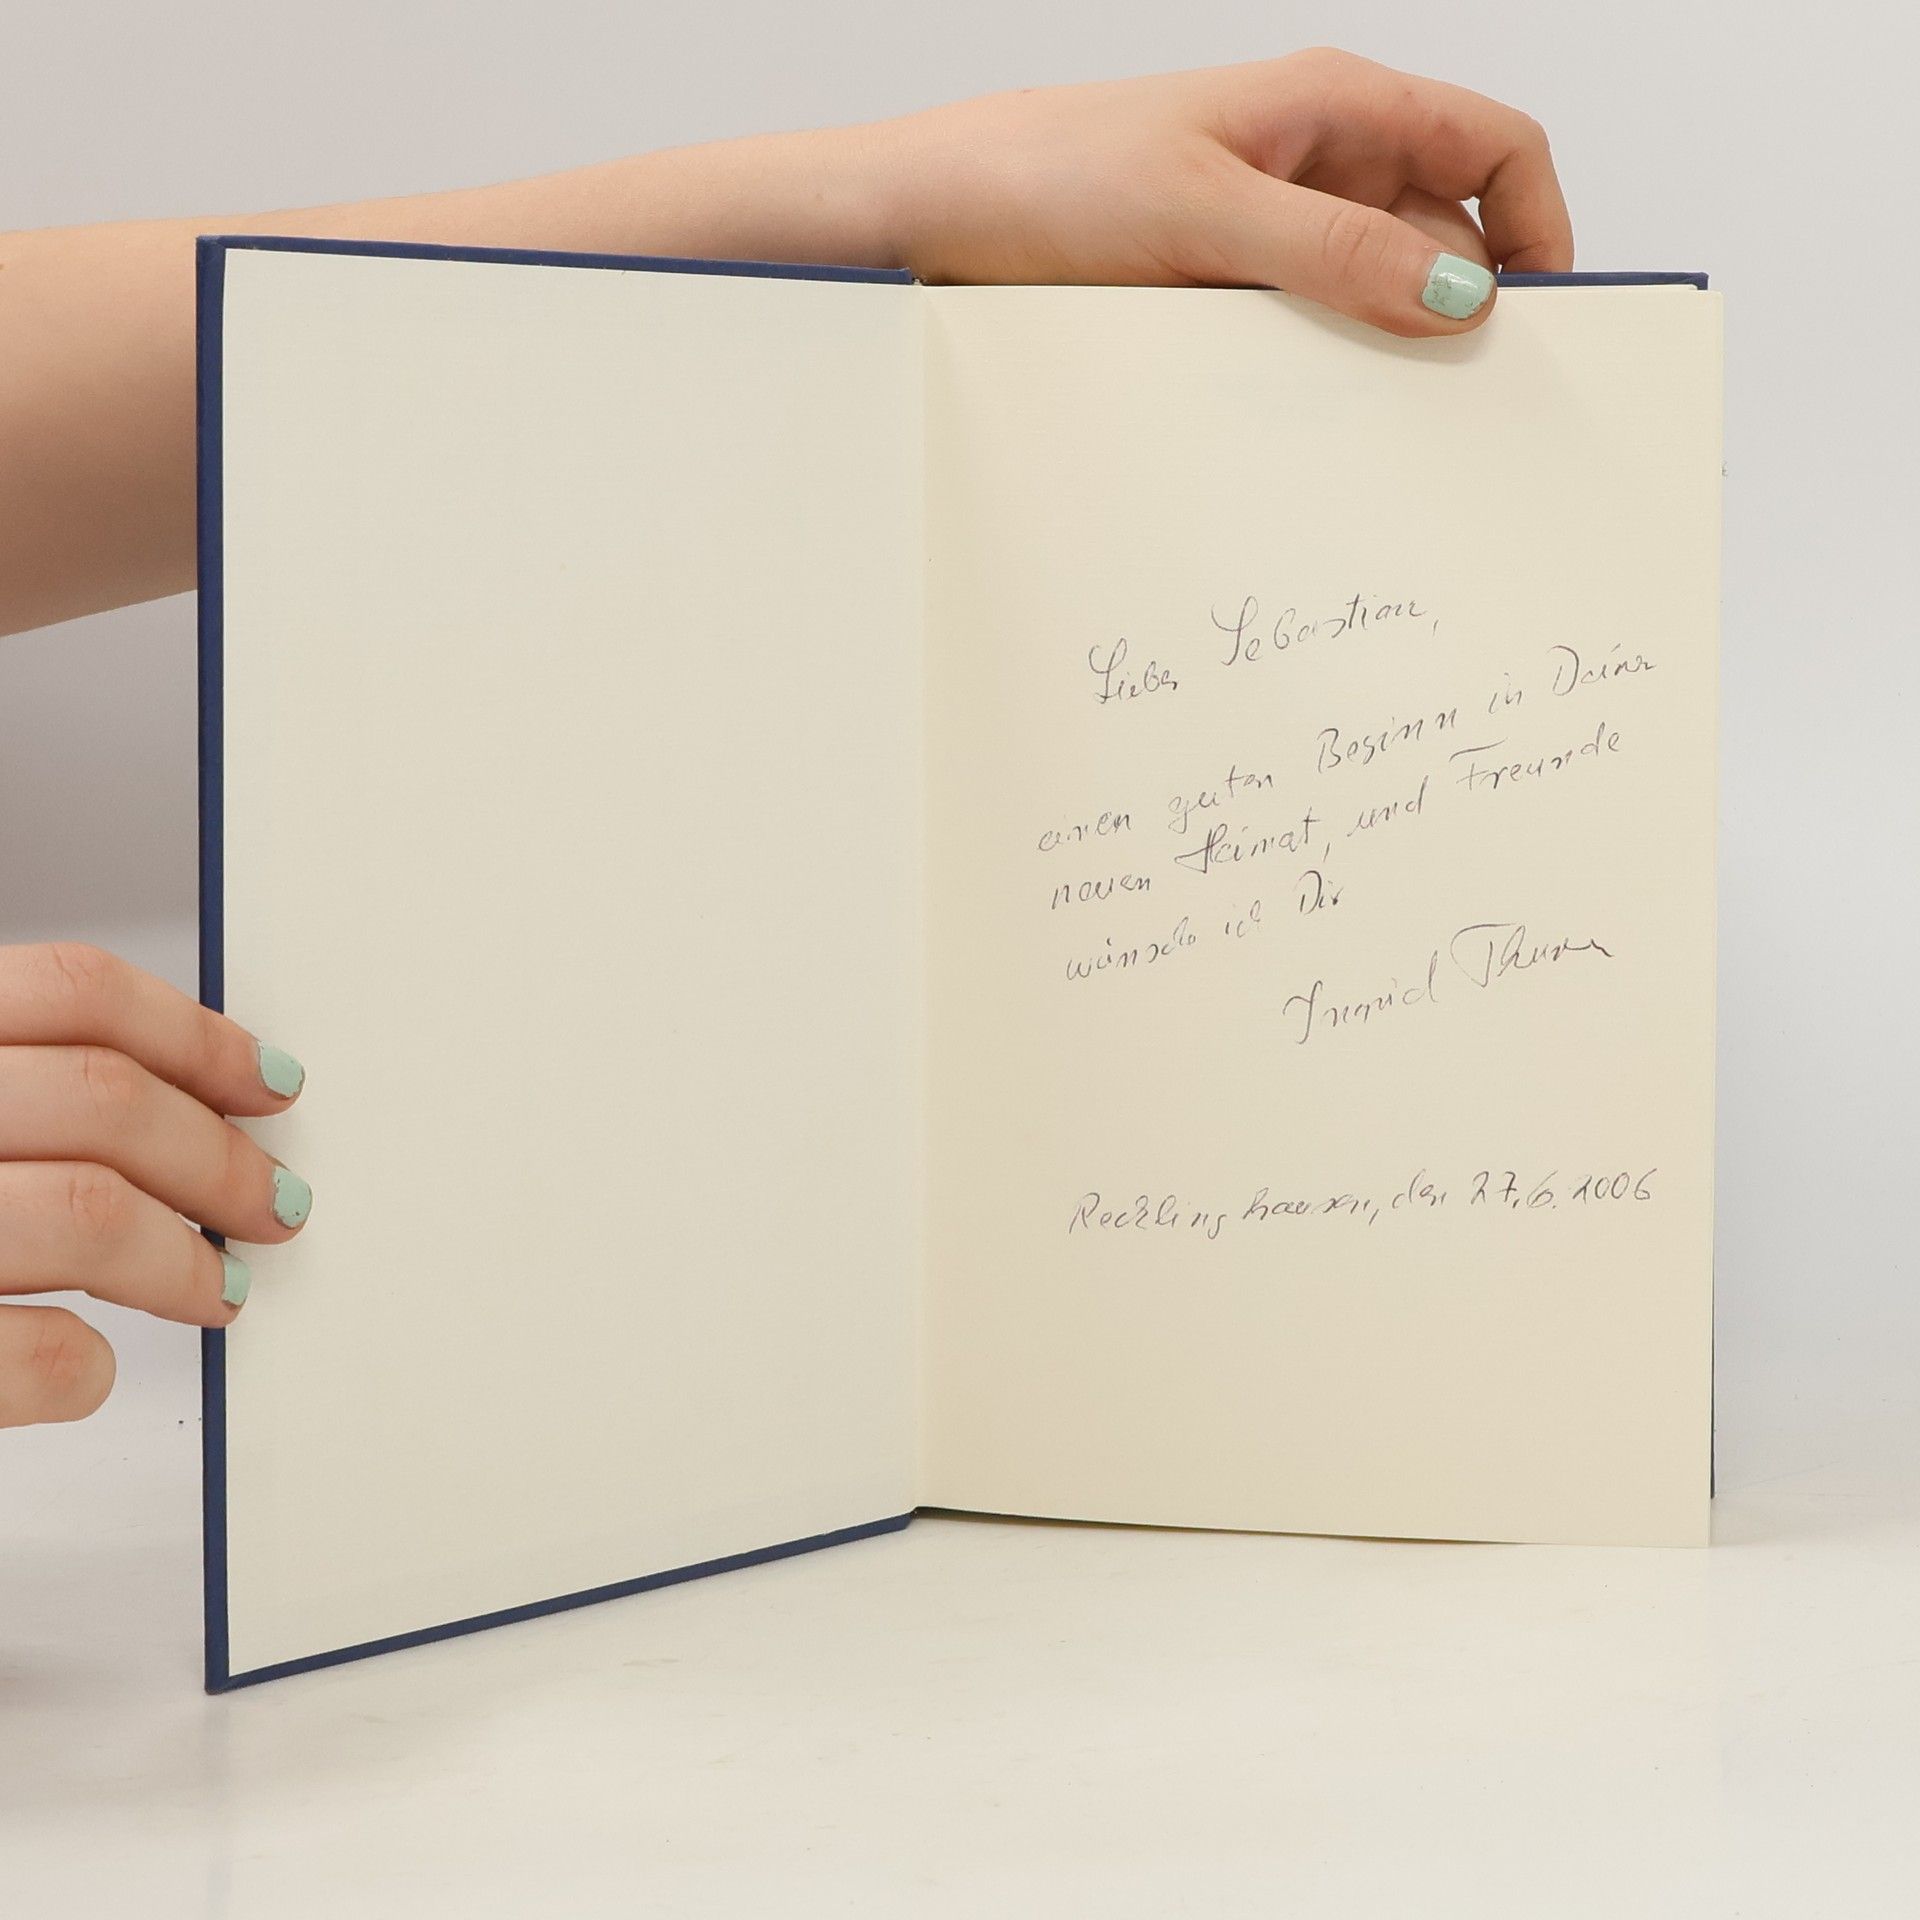 Lieber Sebastian,
einen guten Beginn in Deiner
neuen Heimat, und Freunde
wünsche ich Dir
Ingrid
Recklinghausen, den 27.6.2006